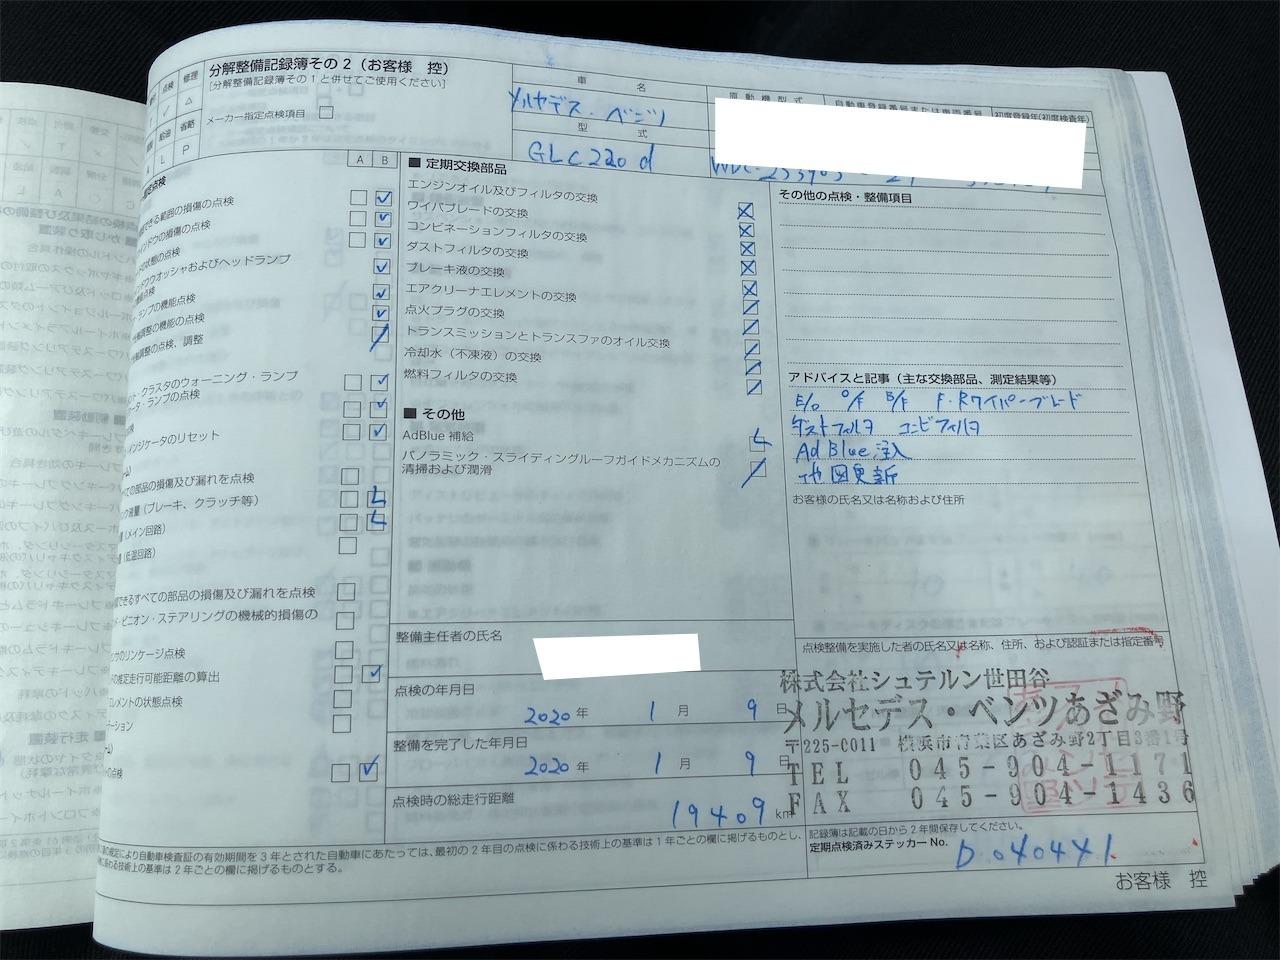 分解整備記録簿その2(お客様 控)
[分解整備記録簿その1と併せてご使用ください]
点検 修理
給油 省略
L P
メーカー指定点検項目
車 名
メルセデス・ベンツ
型 式
GLC220d
原動機型式
自動車登録番号または車両番号
初度登録年(初度検査年)
A B
できる範囲の損傷の点検
インドウの損傷の点検
の状態の点検
ウウオッシャおよびヘッドランプ
ランプの機能点検
調整の機能の点検
調整の点検、調整
ト・クラスタのウォーニング・ランプ
タ・ランプの点検
インジケータのリセット
べての部品の損傷及び漏れを点検
ク液量(ブレーキ、クラッチ等)
(メイン回路)
(低温回路)
できるすべての部品の損傷及び漏れを点検
・ピニオン・ステアリングの機械的損傷の
のリンケージ点検
の推定走行可能距離の算出
エレメントの状態点検
の点検
■ 定期交換部品
エンジンオイル及びフィルタの交換
ワイパブレードの交換
コンビネーションフィルタの交換
ダストフィルタの交換
ブレーキ液の交換
エアクリーナエレメントの交換
点火プラグの交換
トランスミッションとトランスファのオイル交換
冷却水(不凍液)の交換
燃料フィルタの交換
■ その他
AdBlue 補給 L
パノラミック・スライディングルーフガイドメカニズムの
清掃および潤滑
その他の点検・整備項目
アドバイスと記事(主な交換部品、測定結果等)
E/O O/F B/F F・Rワイパーブレード
ダストフィルタ コンビフィルタ
AdBlue注入
地図更新
お客様の氏名又は名称および住所
整備主任者の氏名
点検の年月日
2020年 1月 9日
整備を完了した年月日
2020年 1月 9日
点検時の総走行距離
19409 km
点検整備を実施した者の氏名又は名称、住所、および認証または指定番号
株式会社シュテルン世田谷
メルセデス・ベンツあざみ野
〒225-0011 横浜市青葉区あざみ野2丁目3番1号
TEL 045-904-1171
FAX 045-904-1436
記録簿は記載の日から2年間保存してください。
定期点検済みステッカー No. D040441
の規定により自動車検査証の有効期間を3年とされた自動車にあたっては、最初の2年目の点検に係わる技術上の基準は1年ごとの欄に掲げるものとし、
に係わる技術上の基準は2年ごとの欄に掲げるものとする。
お客様 控